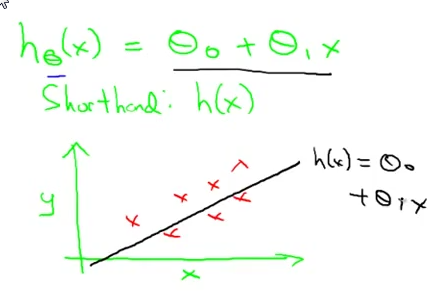 h_θ(x) = θ₀ + θ₁ x
Shorthand: h(x)
h(x) = θ₀
+ θ₁ x
y
x